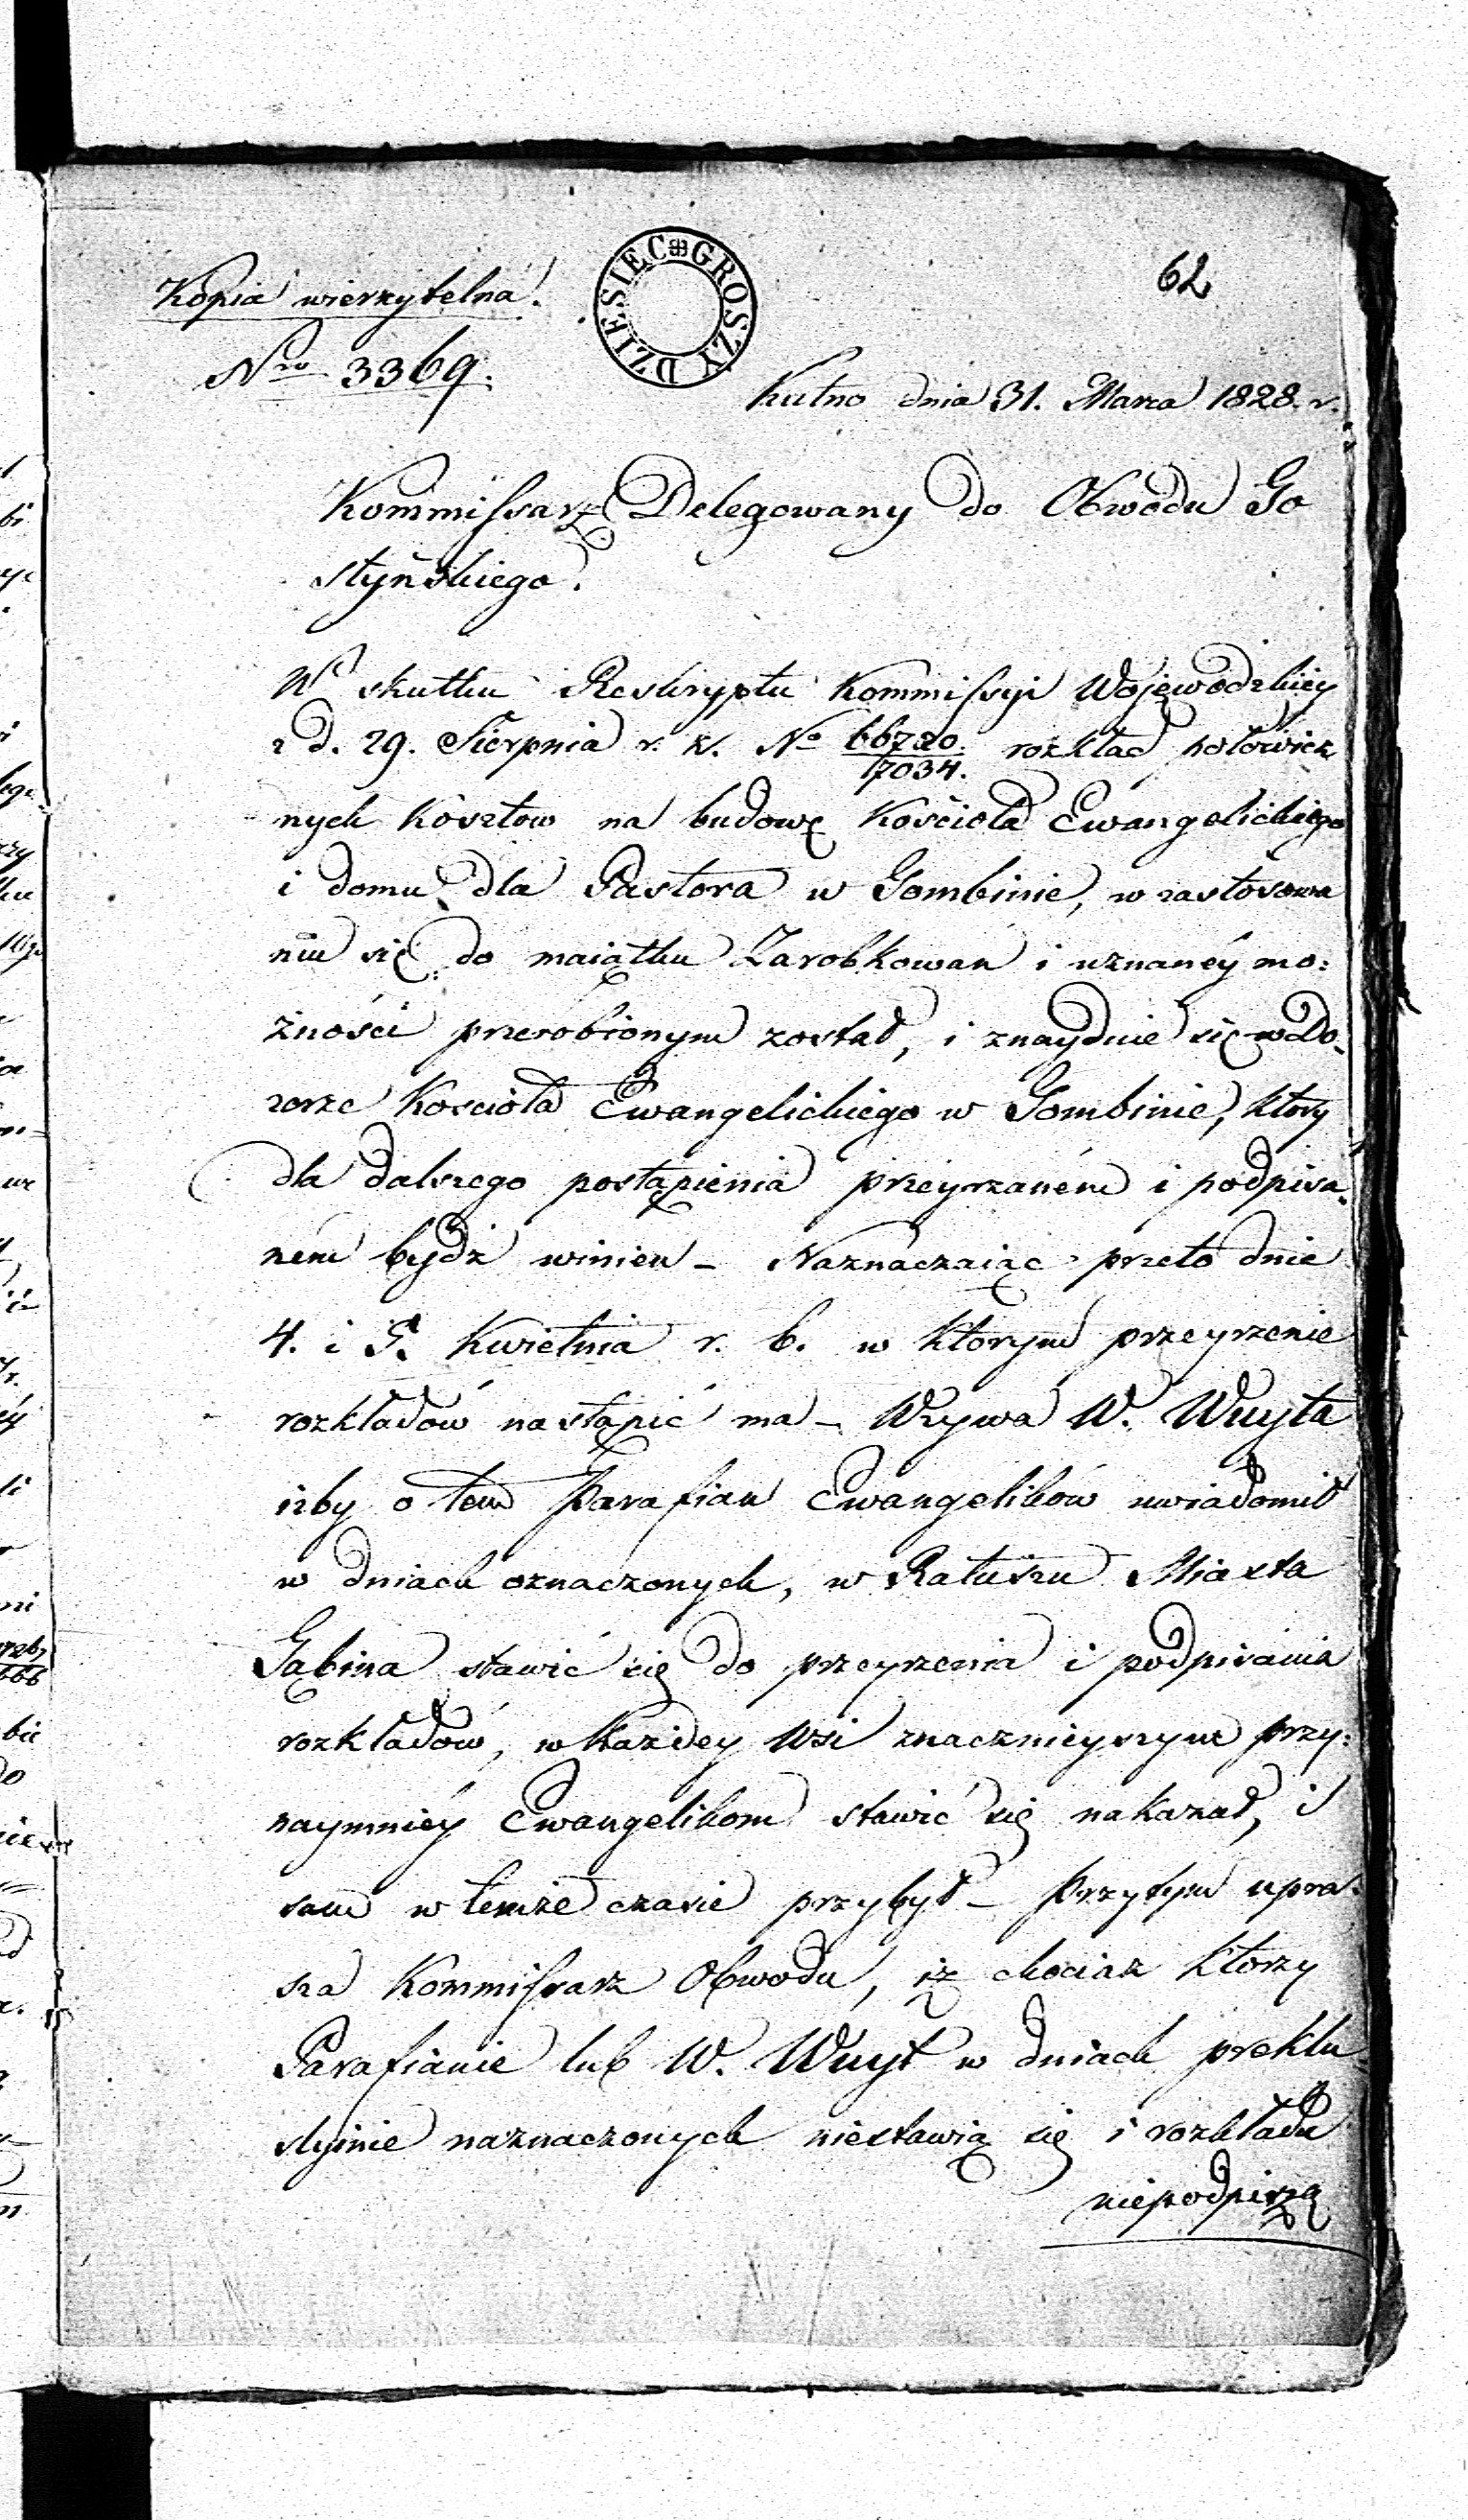 62
DZIESIĘC GROSZY
Kopia wierzytelna.
Nro 3369.
Kutno dnia 31. Marca 1828. r.
Kommissarz Delegowany do Obwodu Go
styńskiego.
W skutku Reskryptu Kommissyi Woiewodzkiey
z d. 29. Sierpnia r. z. No 66720/17034. rozkład połowicz
nych kosztow na budowę Kościoła Ewangelickiego
i domu dla Pastora w Gombinie, w zastosowa
niu się do maiątku Zarobkowań i uznanéy mo:
żności przerobionym został, i znayduie się w Do
zorze Kościoła Ewangelickiego w Gombinie, ktory
dla dalszego postąpienia przeyrzaném i podpisa
ném bydź winien – Naznaczaiąc przeto dnie
4. i 5. Kwietnia r. b. w ktorym przeyrzenie
rozkładów nastąpić ma – Wzywa W. Wuyta
izby o tem Parafian Ewangelików uwiadomił
w dniach oznaczonych, w Ratuszu Miasta
Gąbina stawić się do przeyrzenia i podpisania
rozkładów, w każdey wsi znacznieyszym przy:
naymniéy Ewangelikom stawić się nakazał, i
sam w temże czasie przybył – Przytym upra
sza Kommissarz Obwodu, iż chociaż ktorzy
Parafianie lub W. Wuyt w dniach preklu
slyinie naznaczonych niestawią się i rozkładu
niepodpiszą